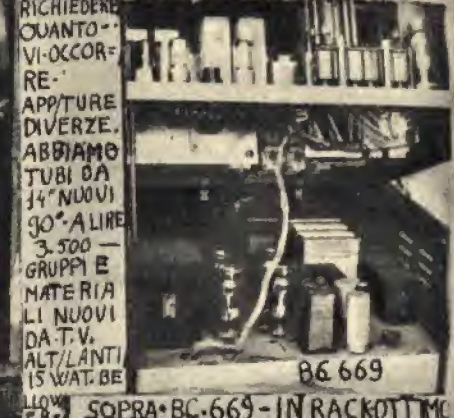 RICHIEDERE
QUANTO--
VI-OCCOR=
RE-
APP/TURE
DIVERZE.
ABBIAMO
TUBI DA
14" NUOVI
90°-A LIRE
3.500 —
GRUPPI E
MATERIA
LI NUOVI
DA-T.V.
ALT/LANTI
15 WAT. BE
LLOW
BC 669
SOPRA•BC•669-IN RACK OTTIMO